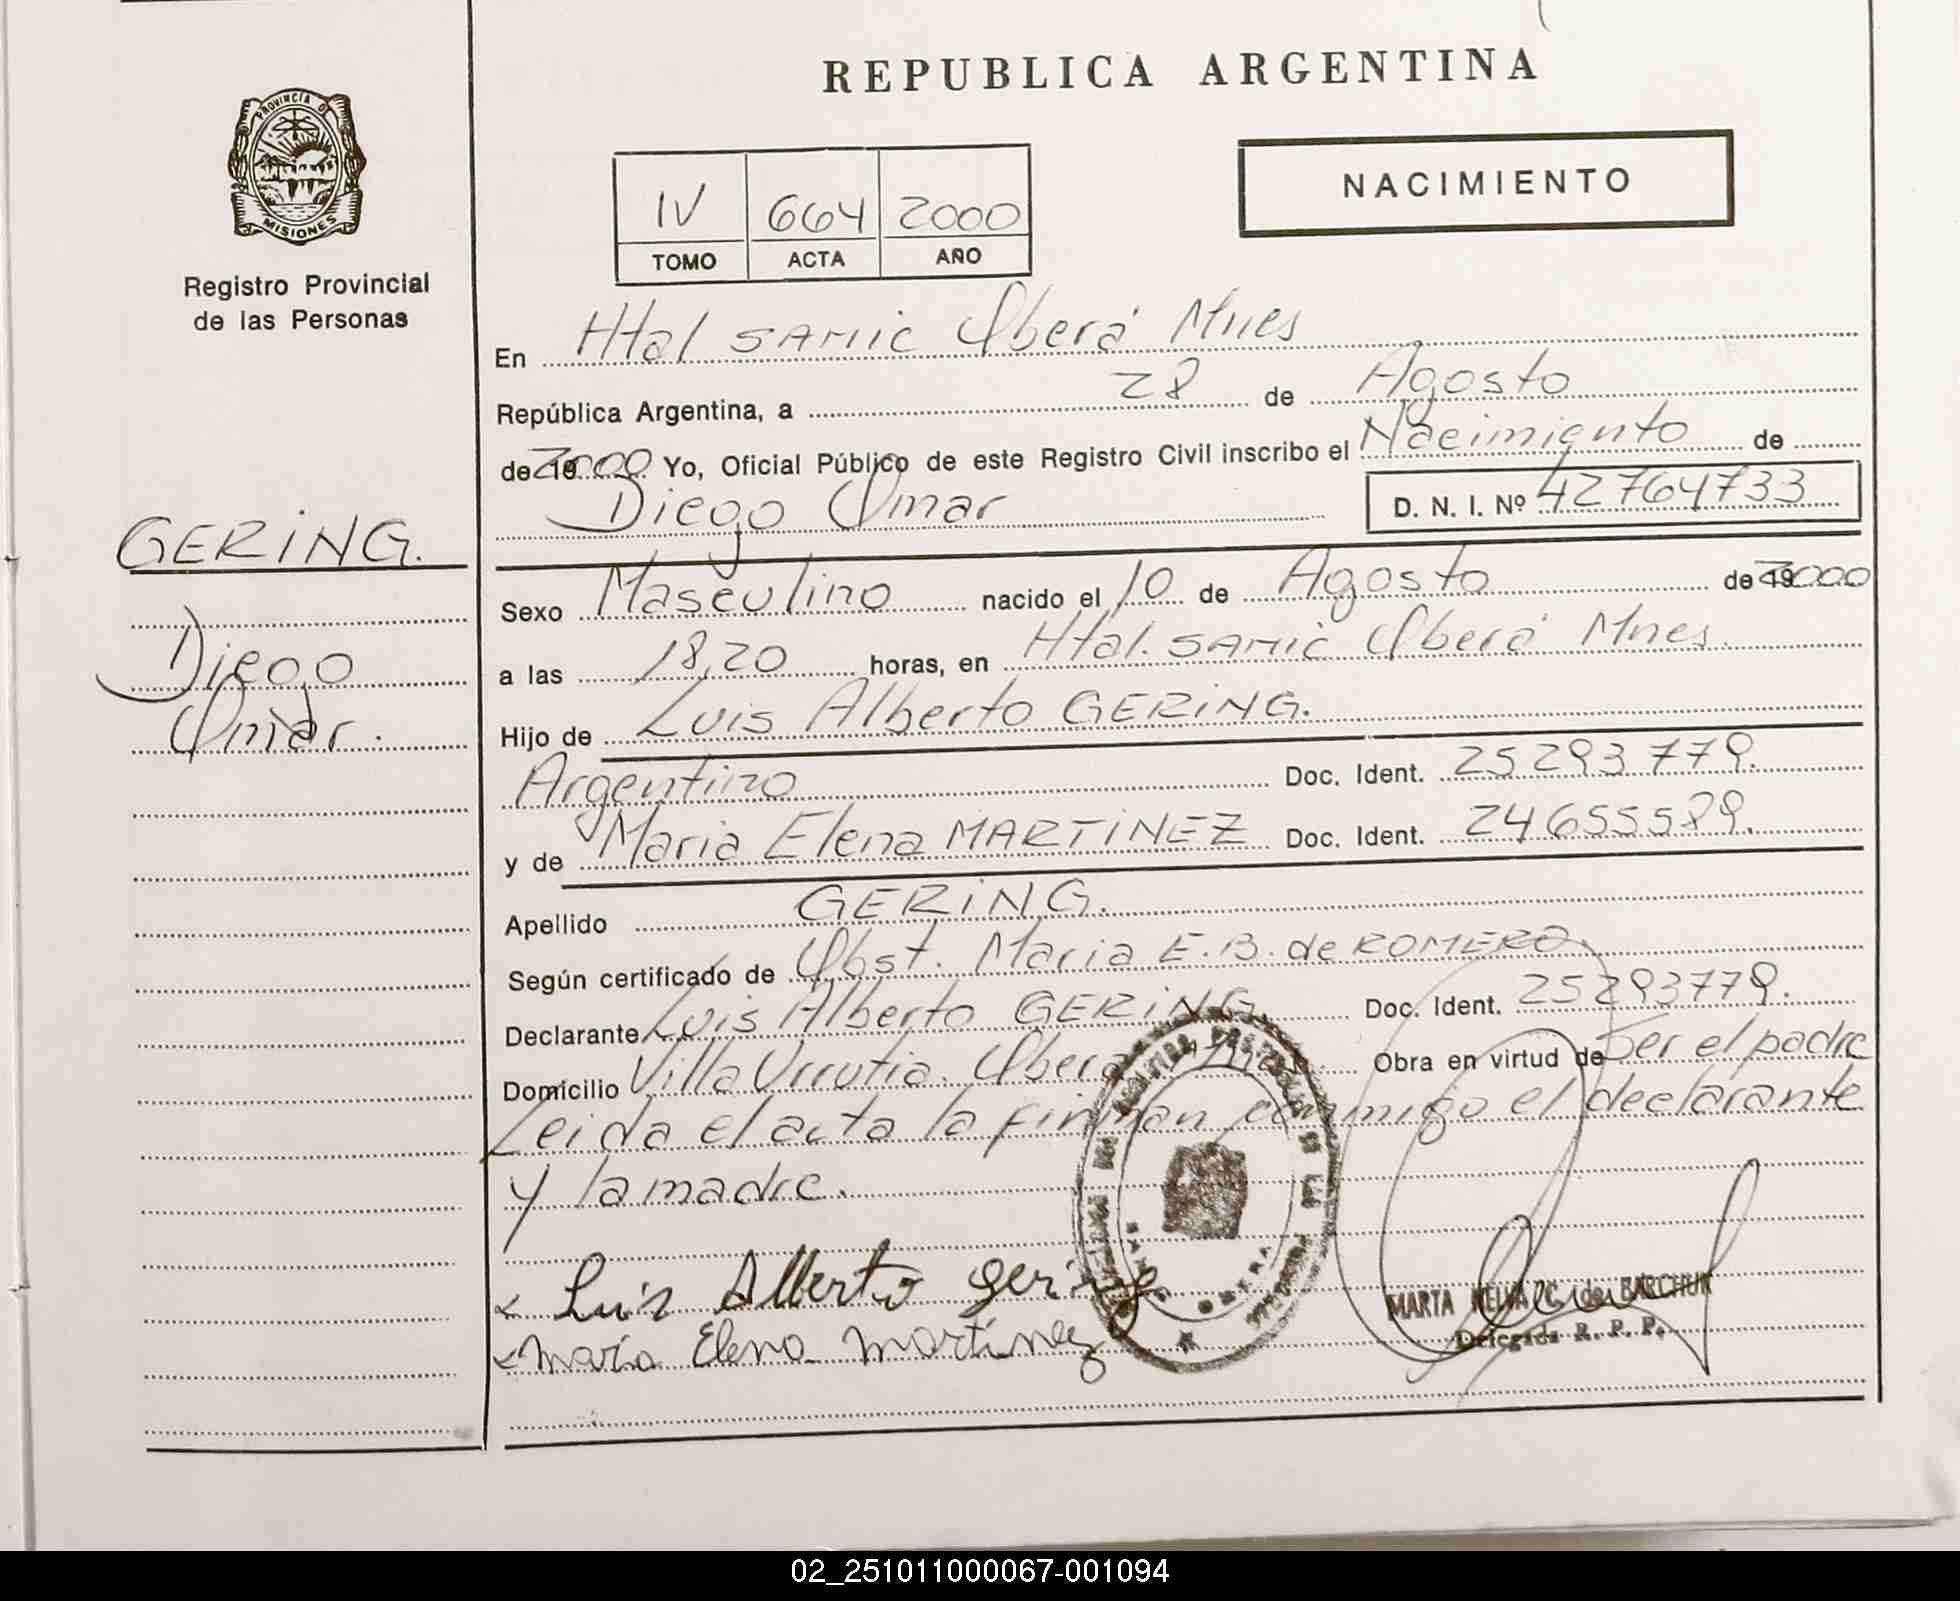 REPUBLICA ARGENTINA
PROVINCIA DE
MISIONES
Registro Provincial
de las Personas
NACIMIENTO
IV 664 2000
TOMO ACTA AÑO
En Htal SAMIC Oberá Mnes
República Argentina, a 28 de Agosto
de 19 2000 Yo, Oficial Público de este Registro Civil inscribo el Nacimiento de
Diego Omar D. N. I. Nº 42764733
GERING.
Diego
Omar.
Sexo Masculino nacido el 10 de Agosto de 19 2000
a las 18,20 horas, en Htal. SAMIC Oberá Mnes.
Hijo de Luis Alberto GERING.
Argentino Doc. Ident. 25293779.
y de Maria Elena MARTINEZ Doc. Ident. 24655589.
Apellido GERING.
Según certificado de Obst. Maria E. B. de ROMERO.
Declarante Luis Alberto GERING. Doc. Ident. 25293779.
Domicilio Villa Urrutia. Obera Mnes. Obra en virtud de Ser el padre
Leida el acta la firman conmigo el declarante
y la madre.
Luis Alberto Gering
María Elena Martínez
MARTA C. de BARCHUK
Delegada R. P. P.
02_251011000067-001094